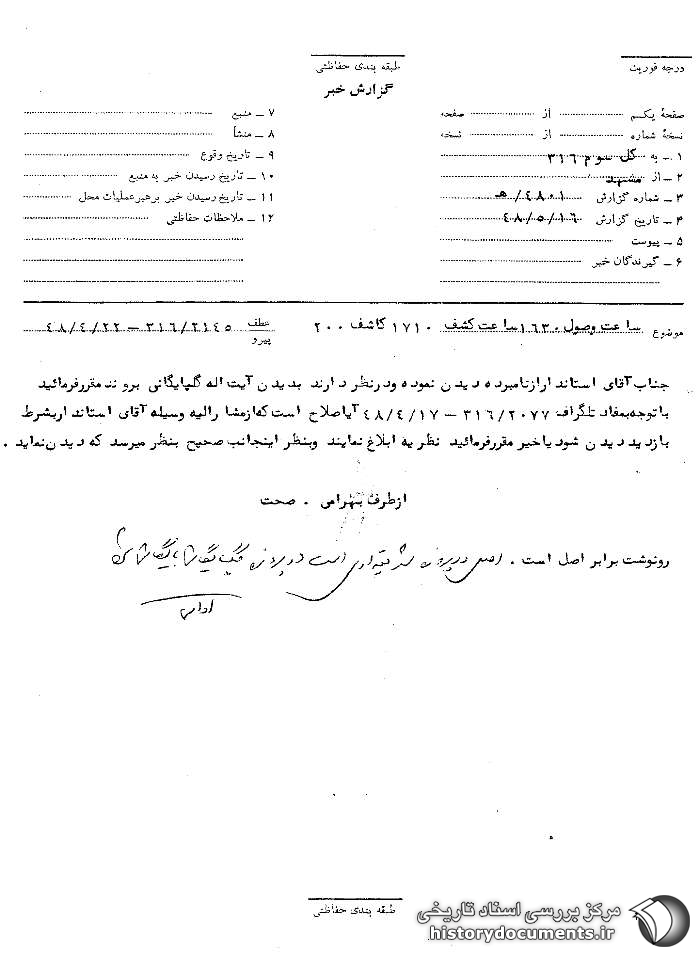 درجه فوریت
طبقه بندی حفاظتی
گزارش خبر
صفحهٔ یکم .......... از .......... صفحه
نسخهٔ شماره .......... از .......... نسخه
۱ ـ به کل سوم ۳۱۶
۲ ـ از مشهد
۳ ـ شماره گزارش ۴۸۰۱ / ه‍
۴ ـ تاریخ گزارش ۴۸/۵/۱۶
۵ ـ پیوست
۶ ـ گیرندگان خبر
۷ ـ منبع
۸ ـ منشأ
۹ ـ تاریخ وقوع
۱۰ ـ تاریخ رسیدن خبر به منبع
۱۱ ـ تاریخ رسیدن خبر برهبر عملیات محل
۱۲ ـ ملاحظات حفاظتی
موضوع ساعت وصول ۱۶۳۰ ساعت کشف ۱۷۱۰ کاشف ۲۰۰
عطف ۳۱۶/۲۱۴۵ – ۴۸/۴/۲۲
پیرو
جناب آقای استاندار ازنامبرده دیدن نموده ودرنظر دارند بدیدن آیت اله گلپایگانی بروند مقررفرمائید
با توجه بمفاد تلگراف ۳۱۶/۲۰۷۷ – ۴۸/۴/۱۷ آیاصلاح است که ازمشا رالیه وسیله آقای استاند اربشرط
بازدید دیدن شود یاخیر مقررفرمائید نظریه ابلاغ نمایند وبنظر اینجانب صحیح بنظر میرسد که دیدن نماید .
ازطرف بهرامی . صحت
رونوشت برابر اصل است . اصل در پرونده است در پرونده
طبقه بندی حفاظتی
مرکز بررسی اسناد تاریخی
historydocuments.ir